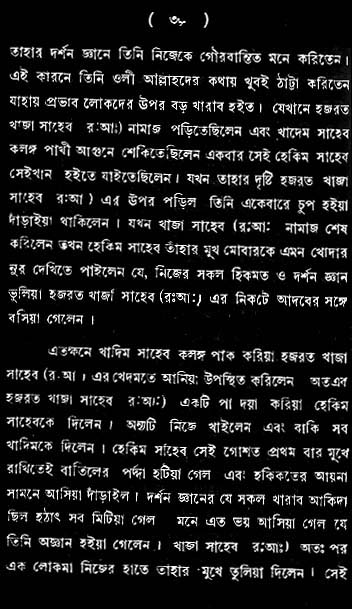 ( ৩৮ )
তাহার দর্শন জ্ঞানে তিনি নিজেকে গৌরবান্বিত মনে করিতেন।
এই কারনে তিনি ওলী আল্লাহদের কথায় খুবই ঠাট্টা করিতেন
যাহায় প্রভাব লোকদের উপর বড় খারাব হইত। যেখানে হজরত
খাজা সাহেব র:আ:) নামাজ পড়িতেছিলেন এবং খাদেম সাহেব
কলঙ্গ পাখী আগুনে শেকিতেছিলেন একবার সেই হেকিম সাহেব
সেইখান হইতে যাইতেছিলেন। যখন তাহার দৃষ্টি হজরত খাজা
সাহেব র:আ ) এর উপর পড়িল তিনি একেবারে চুপ হইয়া
দাঁড়াইয়া থাকিলেন। যখন খাজা সাহেব (র:আ: নামাজ শেষ
করিলেন তখন হেকিম সাহেব তাঁহার মুখ মোবারকে এমন খোদার
নুর দেখিতে পাইলেন যে, নিজের সকল হিকমত ও দর্শন জ্ঞান
ভুলিয়া হজরত খাজা সাহেব (র:আ:, এর নিকটে আদবের সঙ্গে
বসিয়া গেলেন।
এতক্ষনে খাদিম সাহেব কলঙ্গ পাক করিয়া হজরত খাজা
সাহেব (র.আ । এর খেদমতে আনিয়া উপস্থিত করিলেন অতএব
হজরত খাজা সাহেব র:আ:) একটি পা দয়া করিয়া হেকিম
সাহেবকে দিলেন। অন্যটি নিজে খাইলেন এবং বাকি সব
খাদিমকে দিলেন। হেকিম সাহেব সেই গোশত প্রথম বার মুখে
রাখিতেই বাতিলের পর্দ্দা হটিয়া গেল এবং হকিকতের আয়না
সামনে আসিয়া দাঁড়াইল। দর্শন জ্ঞানের যে সকল খারাব আকিদা
ছিল হঠাৎ সব মিটিয়া গেল মনে এত ভয় আসিয়া গেল যে
তিনি অজ্ঞান হইয়া গেলেন। খাজা সাহেব র:আ:) অতঃপর
এক লোকমা নিজের হাতে তাহার মুখে তুলিয়া দিলেন। সেই